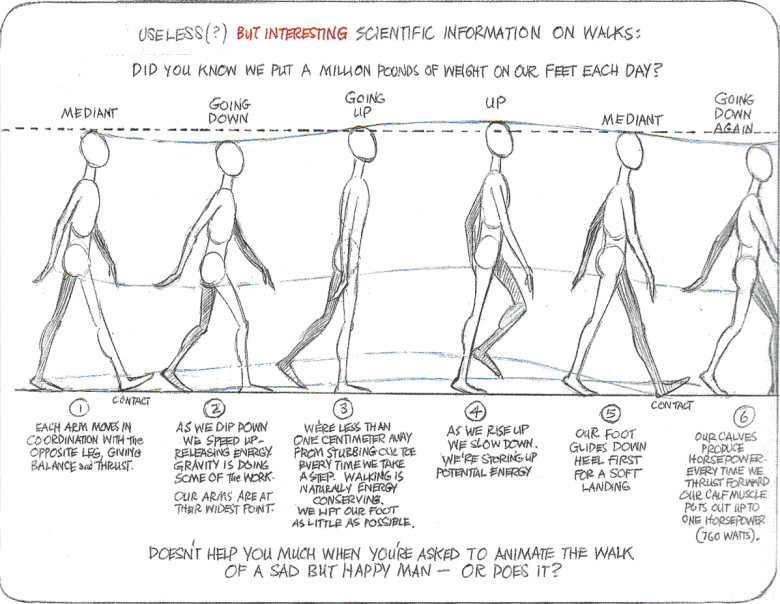 USELESS(?) BUT INTERESTING SCIENTIFIC INFORMATION ON WALKS:
DID YOU KNOW WE PUT A MILLION POUNDS OF WEIGHT ON OUR FEET EACH DAY?
MEDIANT
GOING
DOWN
GOING
UP
UP
MEDIANT
GOING
DOWN
AGAIN
CONTACT
CONTACT
1
EACH ARM MOVES IN
COORDINATION WITH the
OPPOSITE LEG, GIVING
BALANCE and THRUST.
2
AS WE DIP DOWN
WE SPEED UP-
RELEASING ENERGY
GRAVITY IS DOING
SOME OF the WORK.
OUR ARMS ARE AT
THEIR WIDEST POINT.
3
WE'RE LESS THAN
ONE CENTIMETER AWAY
FROM STUBBING OUR TOE
EVERY TIME WE TAKE
A STEP. WALKING IS
NATURALLY ENERGY
CONSERVING.
WE LIFT OUR FOOT
AS LITTLE AS POSSIBLE.
4
AS WE RISE UP
WE SLOW DOWN.
WE'RE STORING UP
POTENTIAL ENERGY
5
OUR FOOT
GLIDES DOWN
HEEL FIRST
FOR A SOFT
LANDING
6
OUR CALVES
PRODUCE
HORSEPOWER.
EVERY TIME WE
THRUST FORWARD
OUR CALF MUSCLE
PUTS OUT UP TO
ONE HORSEPOWER
(760 WATTS).
DOESN'T HELP YOU MUCH WHEN YOU'RE ASKED TO ANIMATE THE WALK
OF A SAD BUT HAPPY MAN — OR DOES IT?